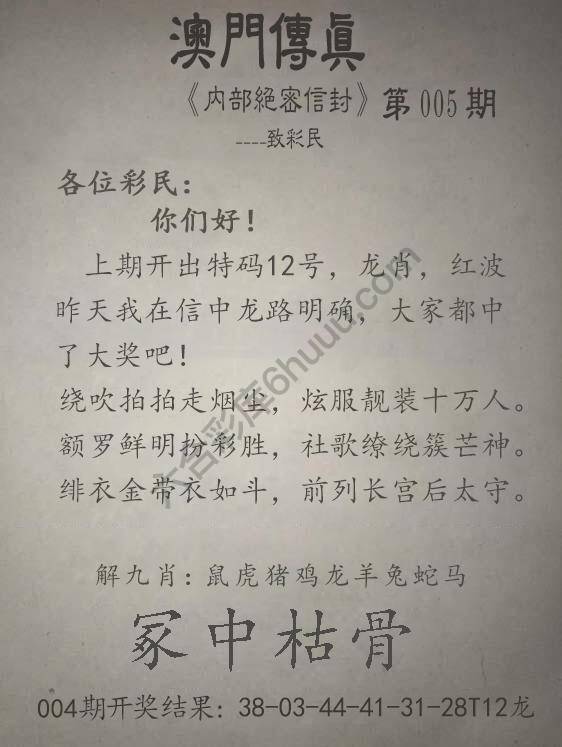 澳門傳眞
《内部絕密信封》第005期
----致彩民
各位彩民：
你们好！
上期开出特码12号，龙肖，红波
昨天我在信中龙路明确，大家都中
了大奖吧！
绕吹拍拍走烟尘，炫服靓装十万人。
额罗鲜明扮彩胜，社歌缭绕簇芒神。
绯衣金带衣如斗，前列长宫后太守。
解九肖：鼠虎猪鸡龙羊兔蛇马
冢中枯骨
004期开奖结果：38-03-44-41-31-28T12龙
六合彩库6huuu.com